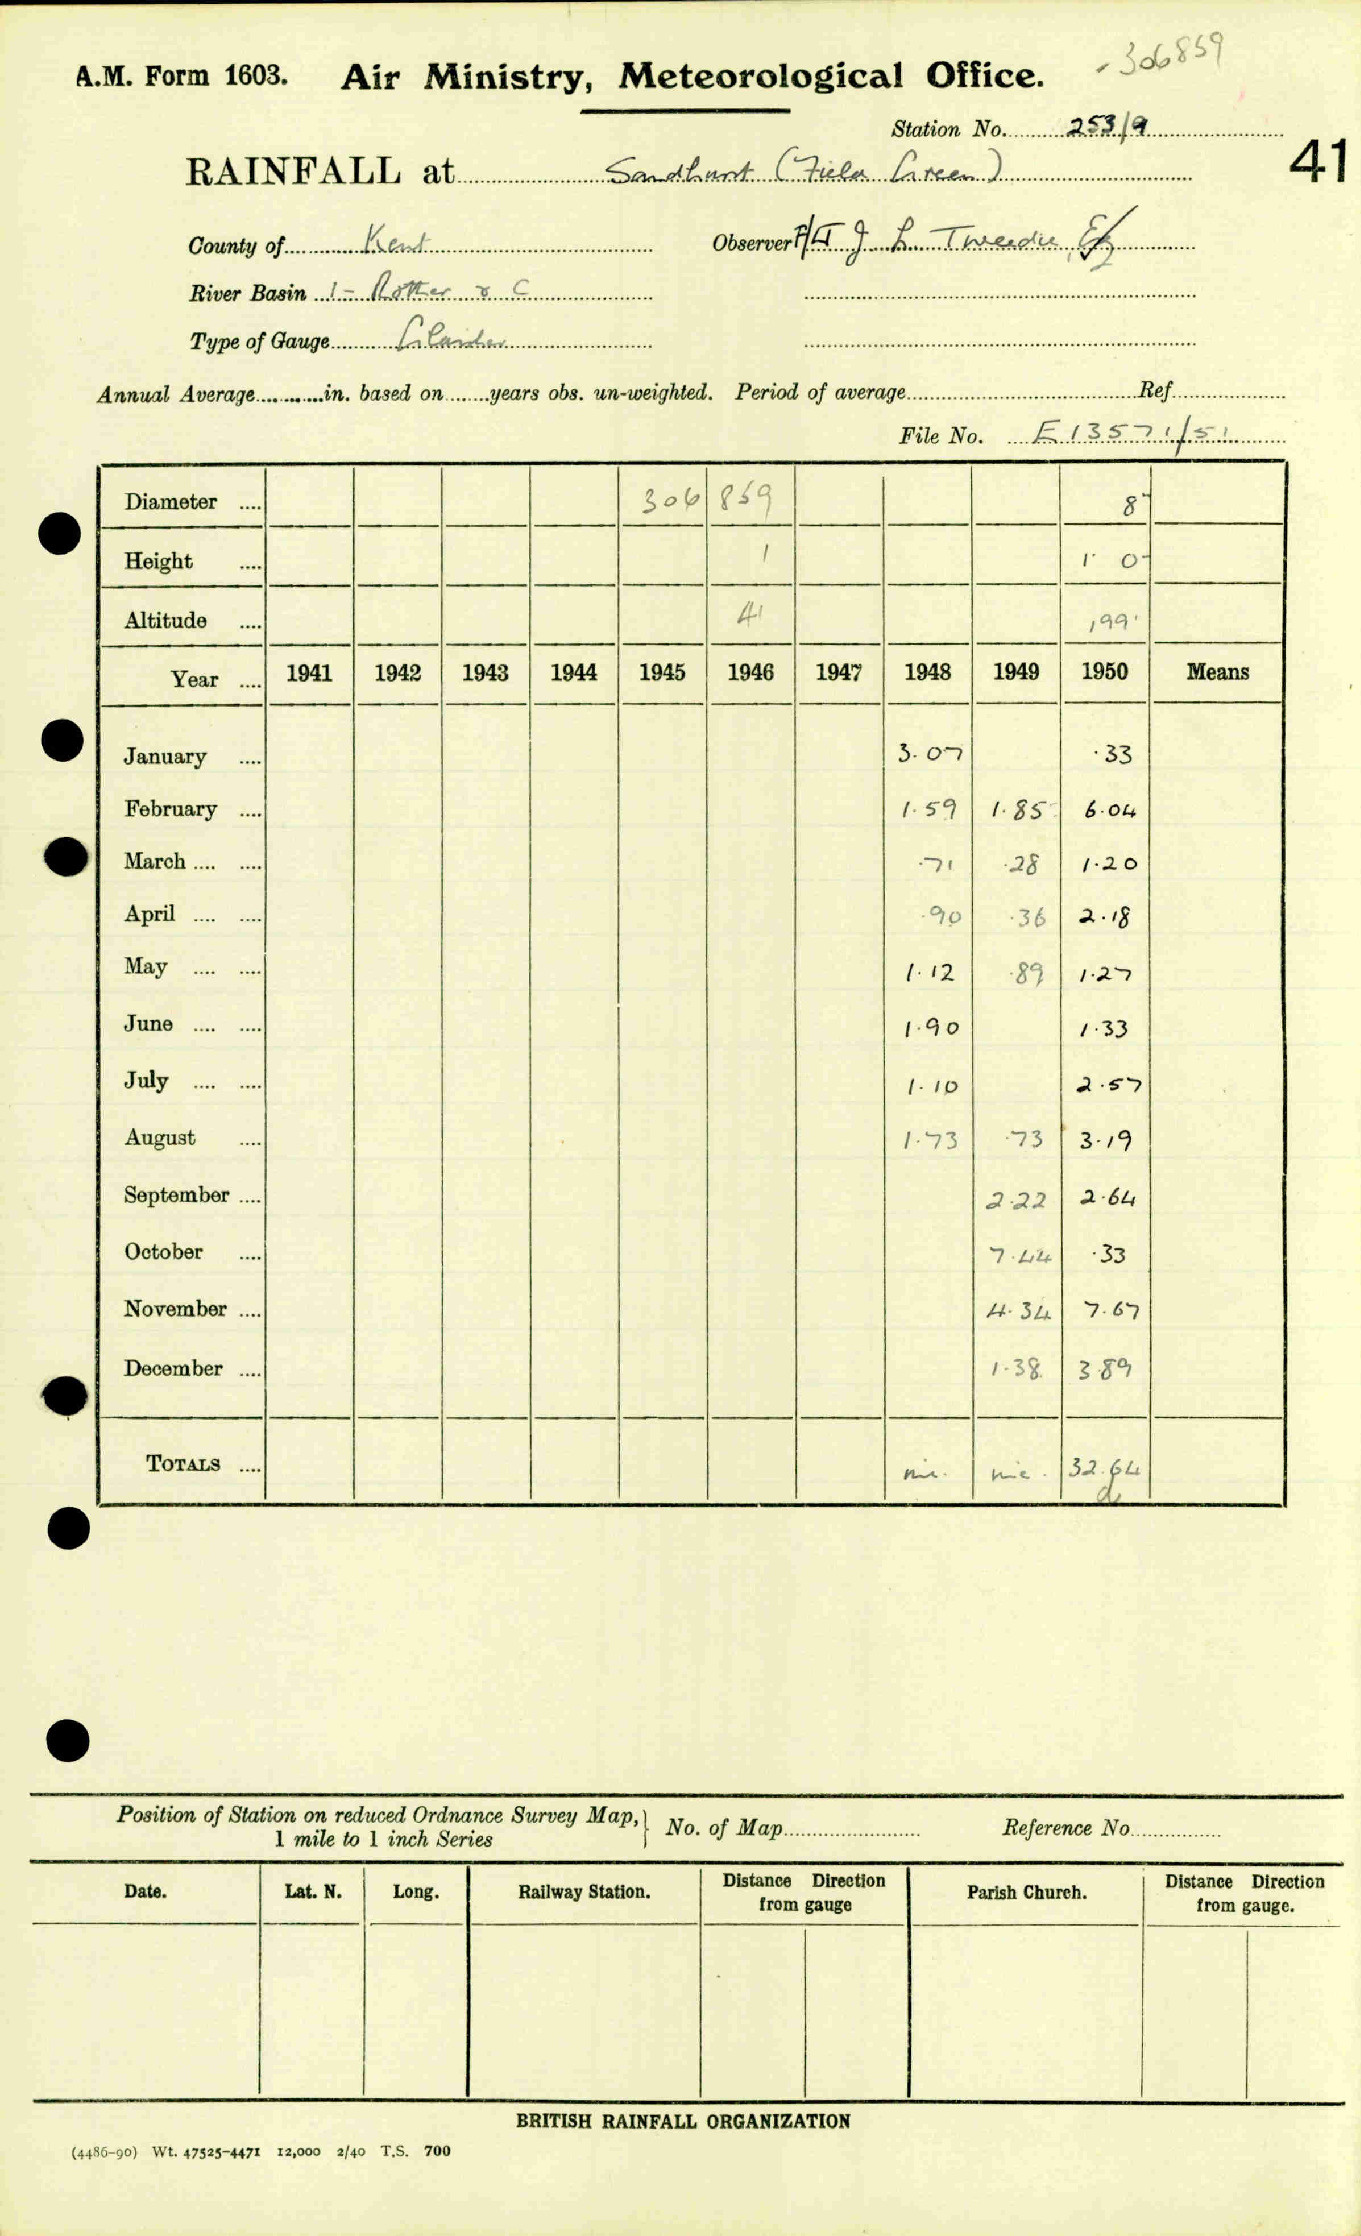 306859
A.M. Form 1603. Air Ministry, Meteorological Office.
Station No. 253/9
41
RAINFALL at Sandhurst (Field Green)
County of Kent Observer F/Lt J. L. Tweedie, Esq
River Basin 1- Rother & C
Type of Gauge
Annual Average in. based on years obs. un-weighted. Period of average Ref
File No. E 13571/51
Diameter 306 859 8"
Height 1 1' 0"
Altitude 41 199'
Year 1941 1942 1943 1944 1945 1946 1947 1948 1949 1950 Means
January 3.07 .33
February 1.59 1.85 6.04
March .71 .28 1.20
April .90 .36 2.18
May 1.12 .89 1.27
June 1.90 1.33
July 1.10 2.57
August 1.73 .73 3.19
September 2.22 2.64
October 7.44 .33
November 4.34 7.67
December 1.38 3.89
TOTALS inc. inc. 32.64
Position of Station on reduced Ordnance Survey Map,
1 mile to 1 inch Series
No. of Map Reference No
Date. Lat. N. Long. Railway Station. Distance Direction from gauge Parish Church. Distance Direction from gauge.
BRITISH RAINFALL ORGANIZATION
(4486-90) Wt. 47525-4471 12,000 2/40 T.S. 700